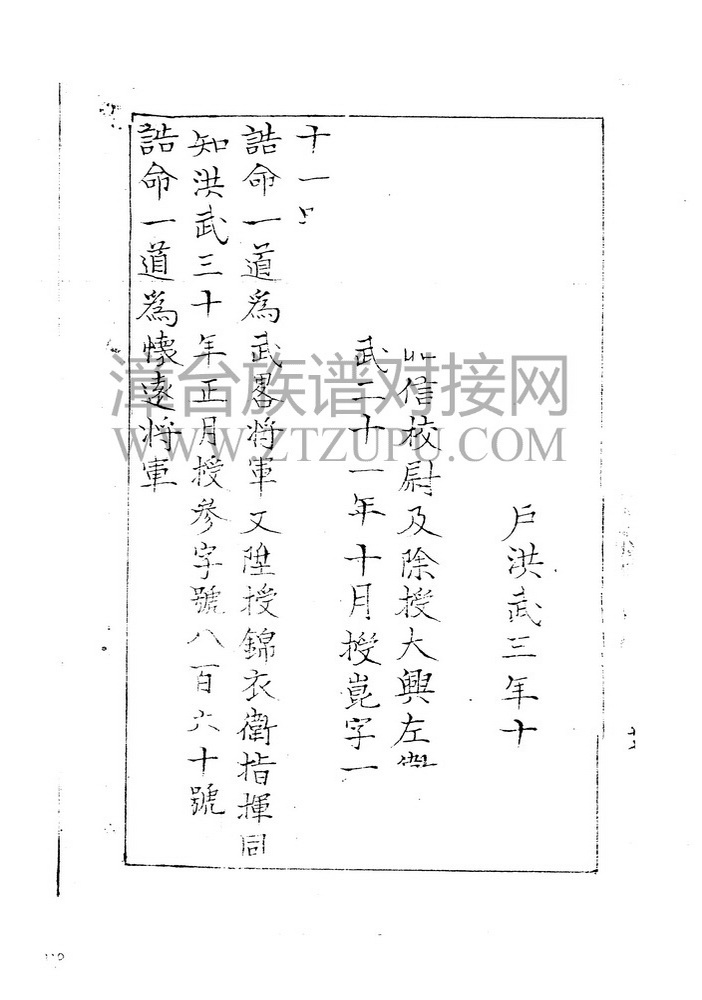 戶洪武三年十
信校尉及除授大興左衛
武二十一年十月授崑字一
十一
誥命一道爲武畧將軍又陞授錦衣衛指揮同
知洪武三十年正月授參字號八百六十號
誥命一道爲懷遠將軍
漳台族谱对接网
WWW.ZTZUPU.COM